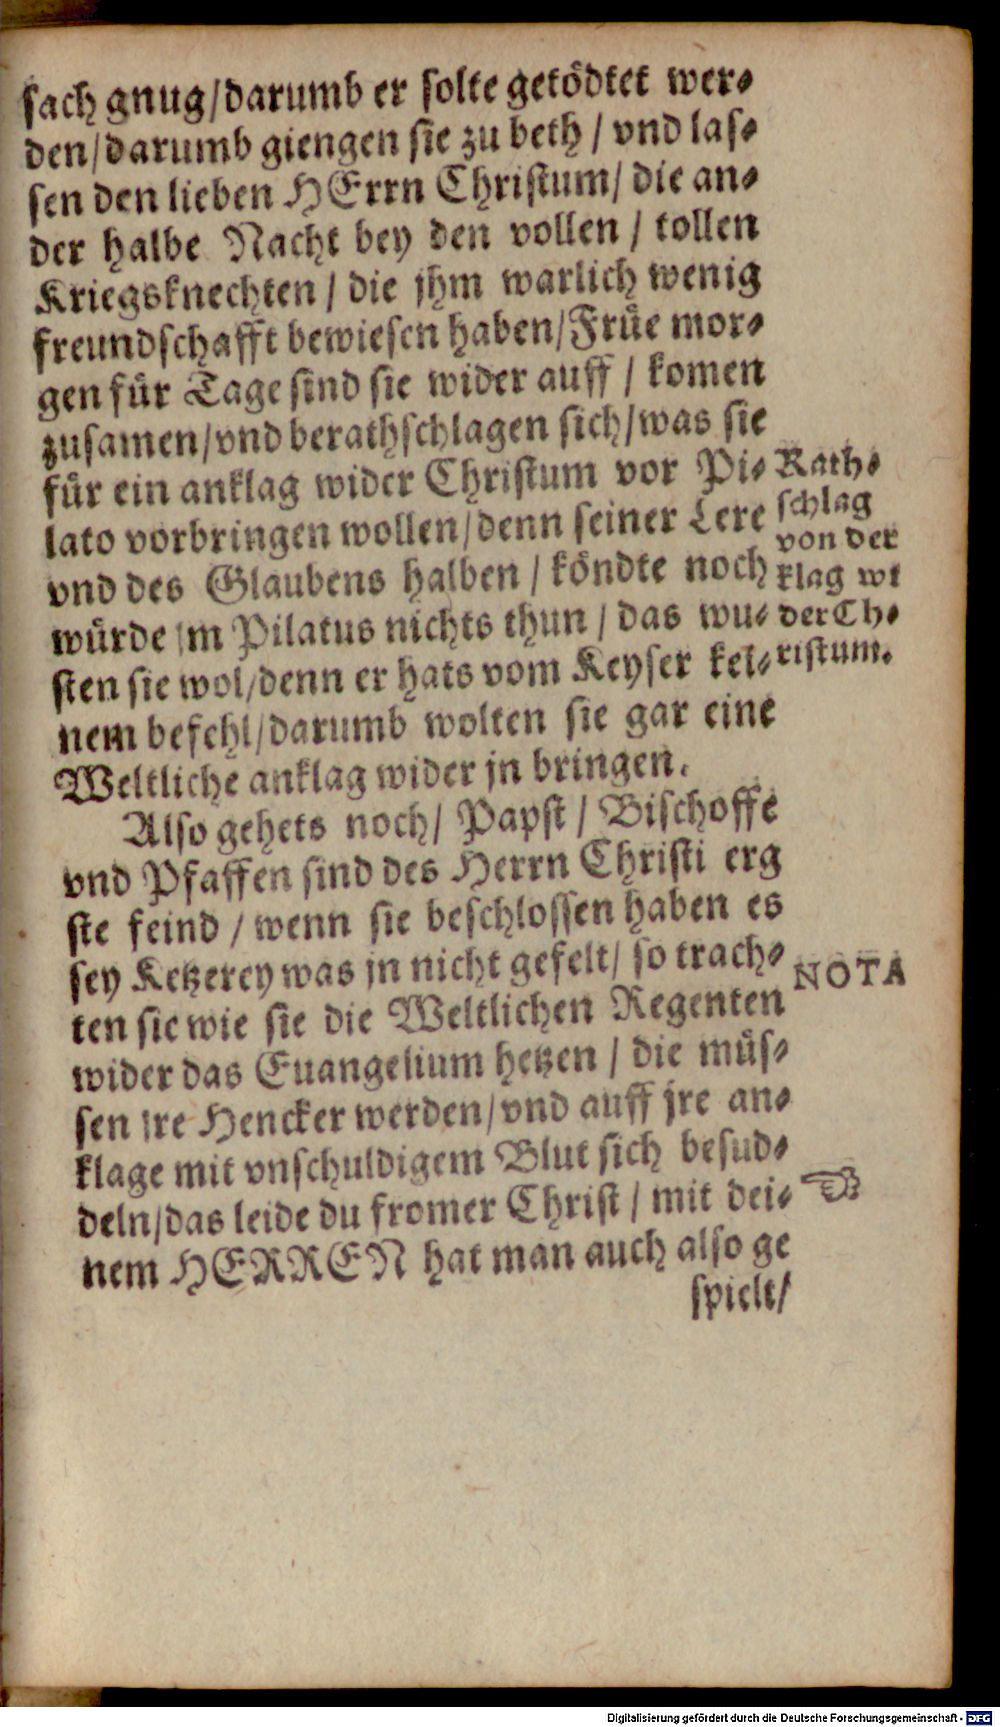 sach gnug/darumb er solte getödtet wer⸗
den/darumb giengen sie zu beth / vnd las⸗
sen den lieben HErrn Christum/ die an⸗
der halbe Nacht bey den vollen / tollen
Kriegsknechten / die jhm warlich wenig
freundschafft bewiesen haben/Früe mor⸗
gen für Tage sind sie wider auff / komen
zusamen/vnd berathschlagen sich/was sie
für ein anklag wider Christum vor Pi⸗
lato vorbringen wollen/denn seiner Lere
vnd des Glaubens halben / köndte noch
würde jm Pilatus nichts thun / das wu⸗
sten sie wol/denn er hats vom Keyser kei⸗
nem befehl/darumb wolten sie gar eine
Weltliche anklag wider jn bringen.
Rath⸗
schlag
von der
klag wi
der Ch⸗
ristum.
Also gehets noch/ Papst / Bischoffe
vnd Pfaffen sind des Herrn Christi erg
ste feind / wenn sie beschlossen haben es
sey Ketzerey was jn nicht gefelt/ so trach⸗
ten sie wie sie die Weltlichen Regenten
wider das Euangelium hetzen / die müs⸗
sen jre Hencker werden/vnd auff jre an⸗
klage mit vnschuldigem Blut sich besud⸗
deln/das leide du fromer Christ / mit dei⸗
nem HERREN hat man auch also ge
spielt/
NOTA
☜
Digitalisierung gefördert durch die Deutsche Forschungsgemeinschaft - DFG